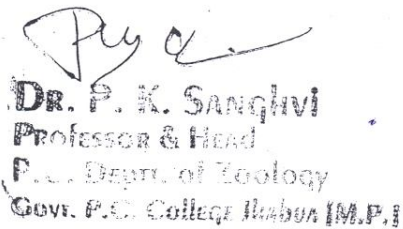 DR. P. K. SANGHVI
Professor & Head
P.G. Deptt. of Zoology
Govt. P.G. College Jhabua [M.P.]